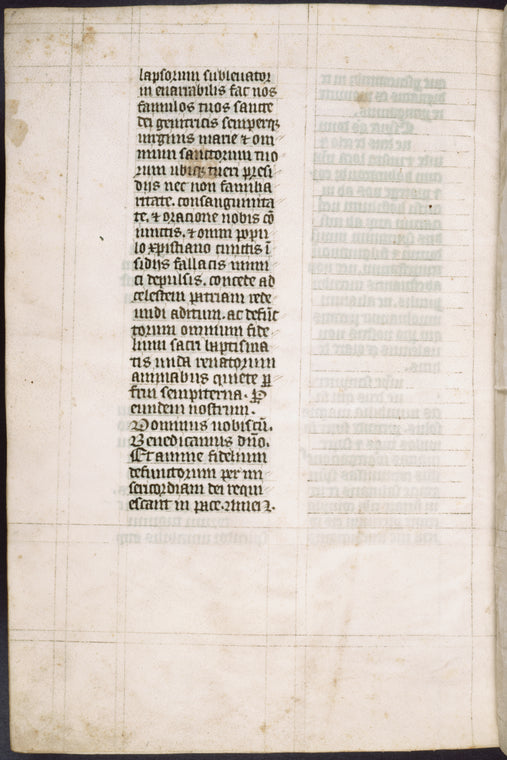 lapsorum subleuator
in enarrabilis fac nos
famulos tuos sancte
dei genitricis semperqȝ
uirginis marie ⁊ om
nium sanctorum tuo
rum ubiqȝ tueri presi
dijs nec non familia
ritate. consanguinita
te. ⁊ oracione nobis cō
iunctis. ⁊ omni popu
lo xp̄istiano cunctis ī
sidijs fallacis inimi
ci depulsis. concede ad
celestem patriam rede
undi aditum. ac defūc
torum omnium fide
lium sacri baptisma
tis unda renatorum
animabus quiete ꝑ
frui sempiterna. P
eundem nostrum.
Dominus uobiscū.
Benedicamus dn̄o.
Et anime fidelium
defunctorum per mi
sericordiam dei requi
escant in pace.